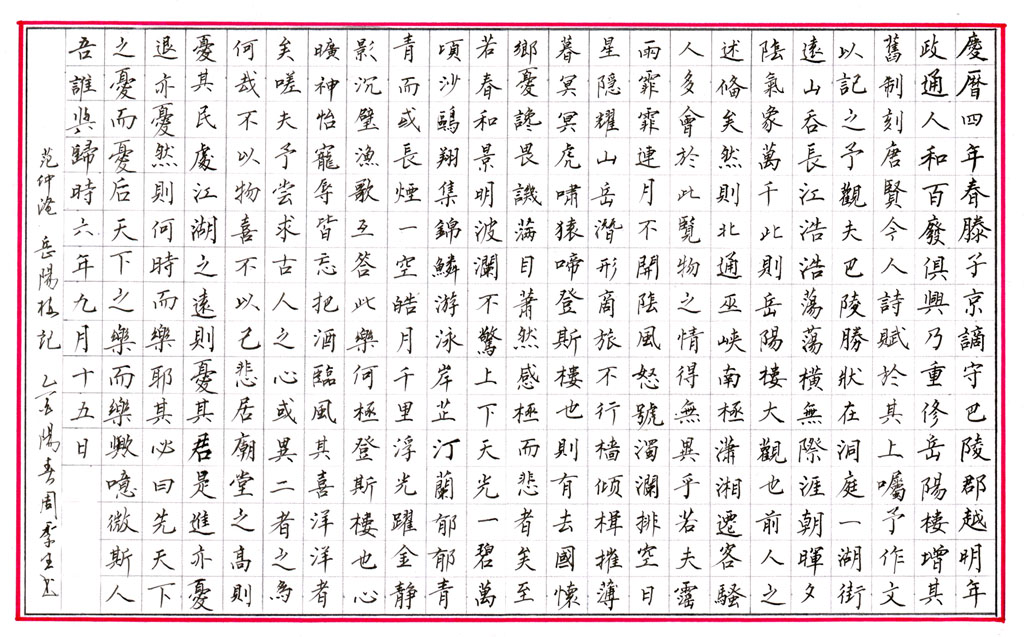 慶曆四年春滕子京謫守巴陵郡越明年
政通人和百廢俱興乃重修岳陽樓增其
舊制刻唐賢今人詩賦於其上囑予作文
以記之予觀夫巴陵勝狀在洞庭一湖銜
遠山吞長江浩浩蕩蕩橫無際涯朝暉夕
陰氣象萬千此則岳陽樓大觀也前人之
述俻矣然則北通巫峽南極瀟湘遷客騷
人多會於此覽物之情得無異乎若夫霪
雨霏霏連月不開陰風怒號濁瀾排空日
星隱耀山岳潛形商旅不行檣傾楫摧薄
暮冥冥虎嘯猿啼登斯樓也則有去國懷
鄉憂讒畏譏滿目蕭然感極而悲者矣至
若春和景明波瀾不驚上下天光一碧萬
頃沙鷗翔集錦鱗游泳岸芷汀蘭郁郁青
青而或長煙一空皓月千里浮光躍金静
影沉璧漁歌互答此樂何極登斯樓也心
曠神怡寵辱皆忘把酒臨風其喜洋洋者
矣嗟夫予嘗求古人之心或異二者之為
何哉不以物喜不以己悲居廟堂之高則
憂其民處江湖之遠則憂其君是進亦憂
退亦憂然則何時而樂耶其必曰先天下
之憂而憂后天下之樂而樂歟噫微斯人
吾誰與歸時六年九月十五日
范仲淹 岳陽樓記 乙陽春周季